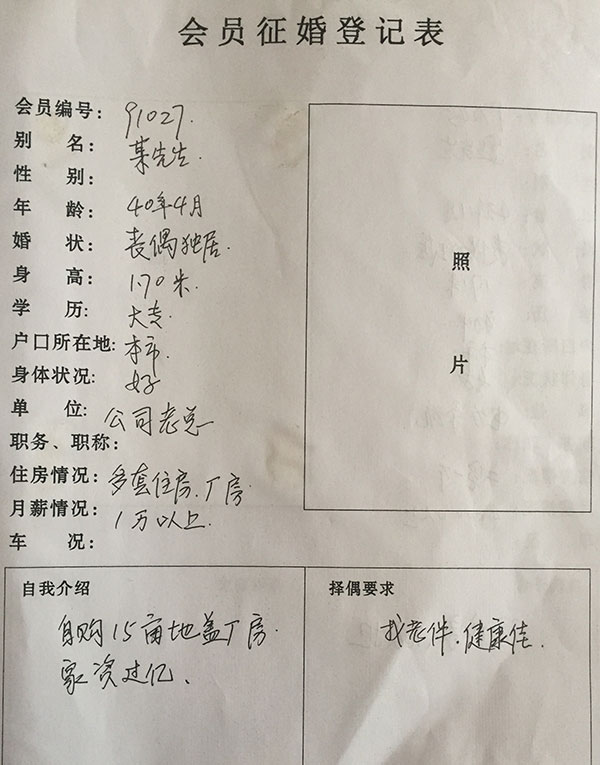 会员征婚登记表
会员编号: 91027.
别 名: 某先生.
性 别:
年 龄: 40年4月
婚 状: 丧偶独居.
身 高: 1.70米
学 历: 大专
户口所在地: 本市
身体状况: 好
单 位: 公司老总
职务、职称:
住房情况: 多套住房、厂房
月薪情况: 1万以上
车 况:
照
片
自我介绍
自购15亩地盖厂房.
家资过亿、
择偶要求
找老伴.健康佳.